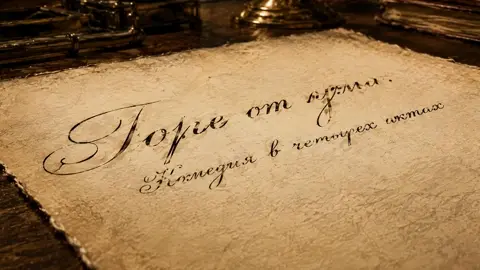 Горе от ума.
Комедия в четырех актах